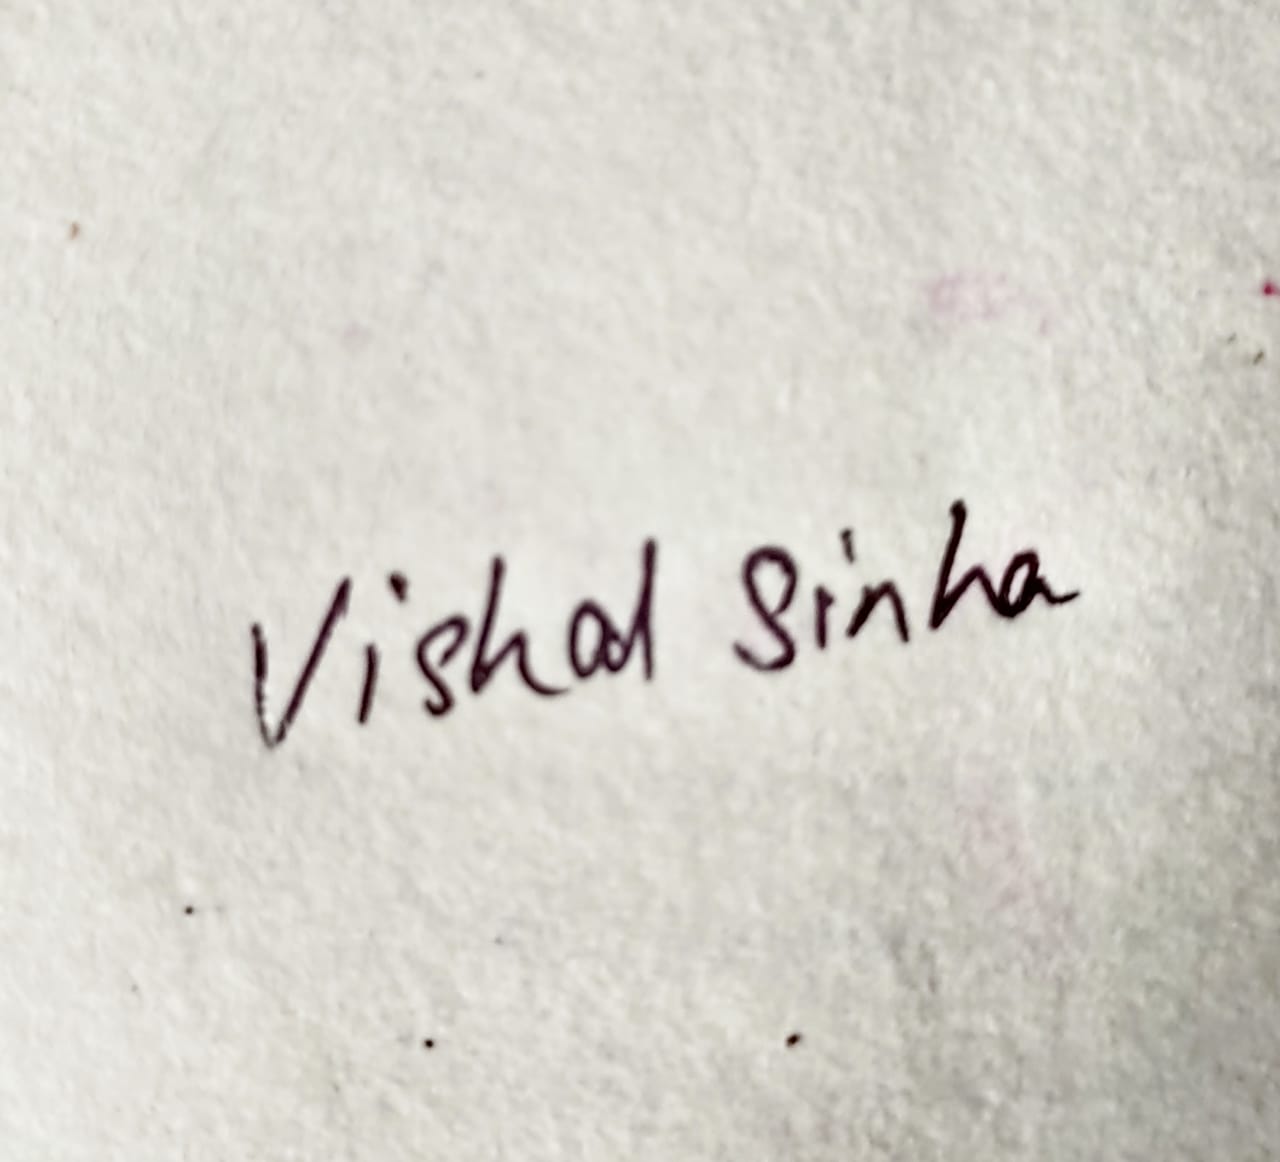 Vishal Sinha